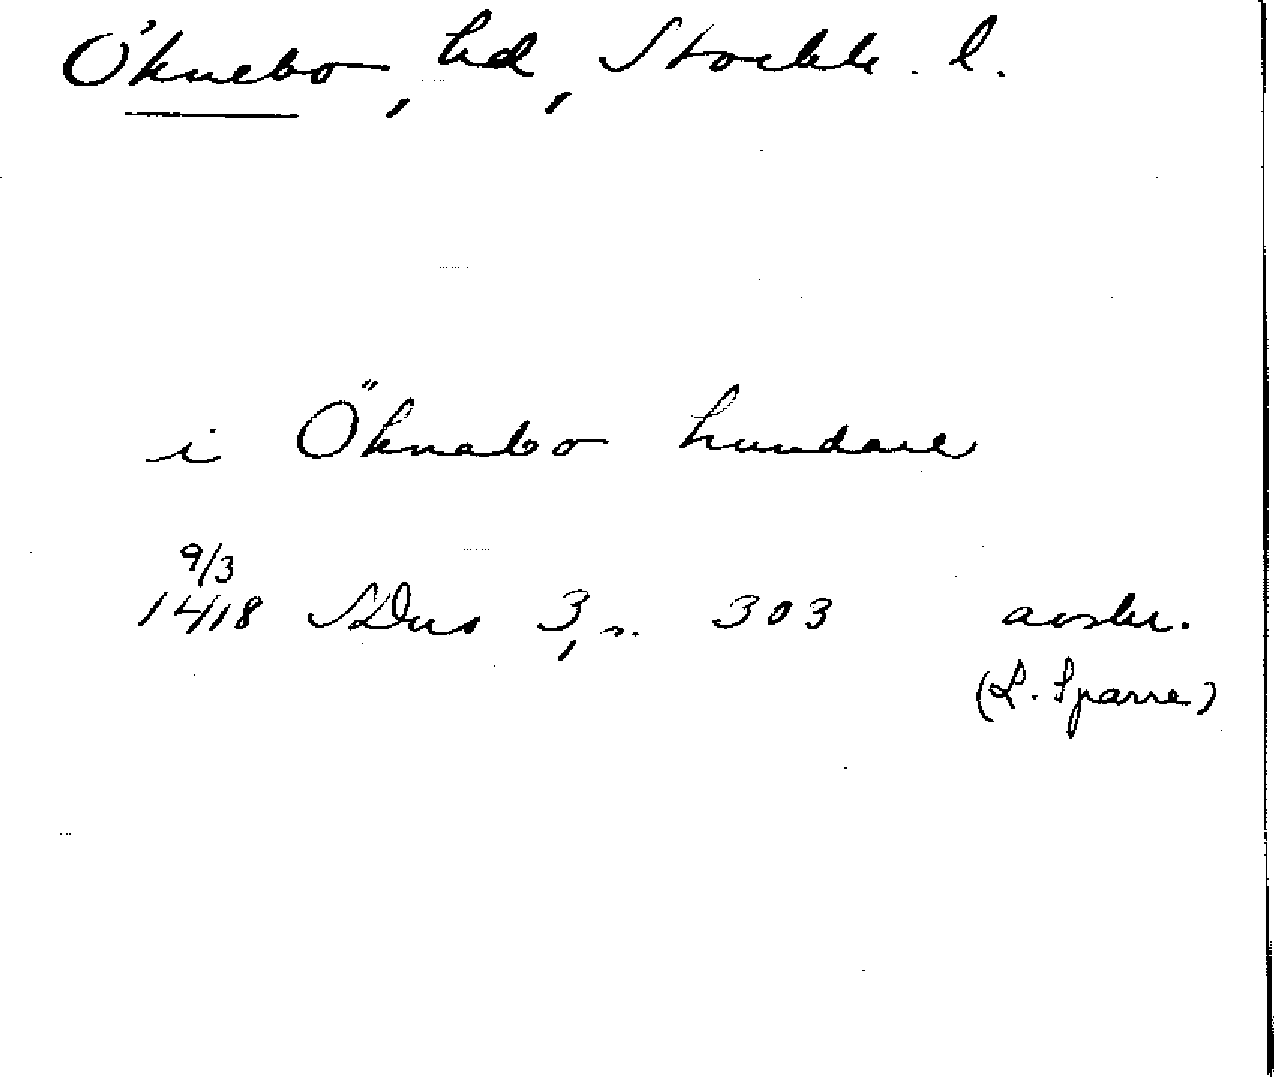 Öknebo, hd, Stockh. l.
i Öknabo hundare
9/3
1418 SDns 3, s. 303 avskr.
(L. Sparre)